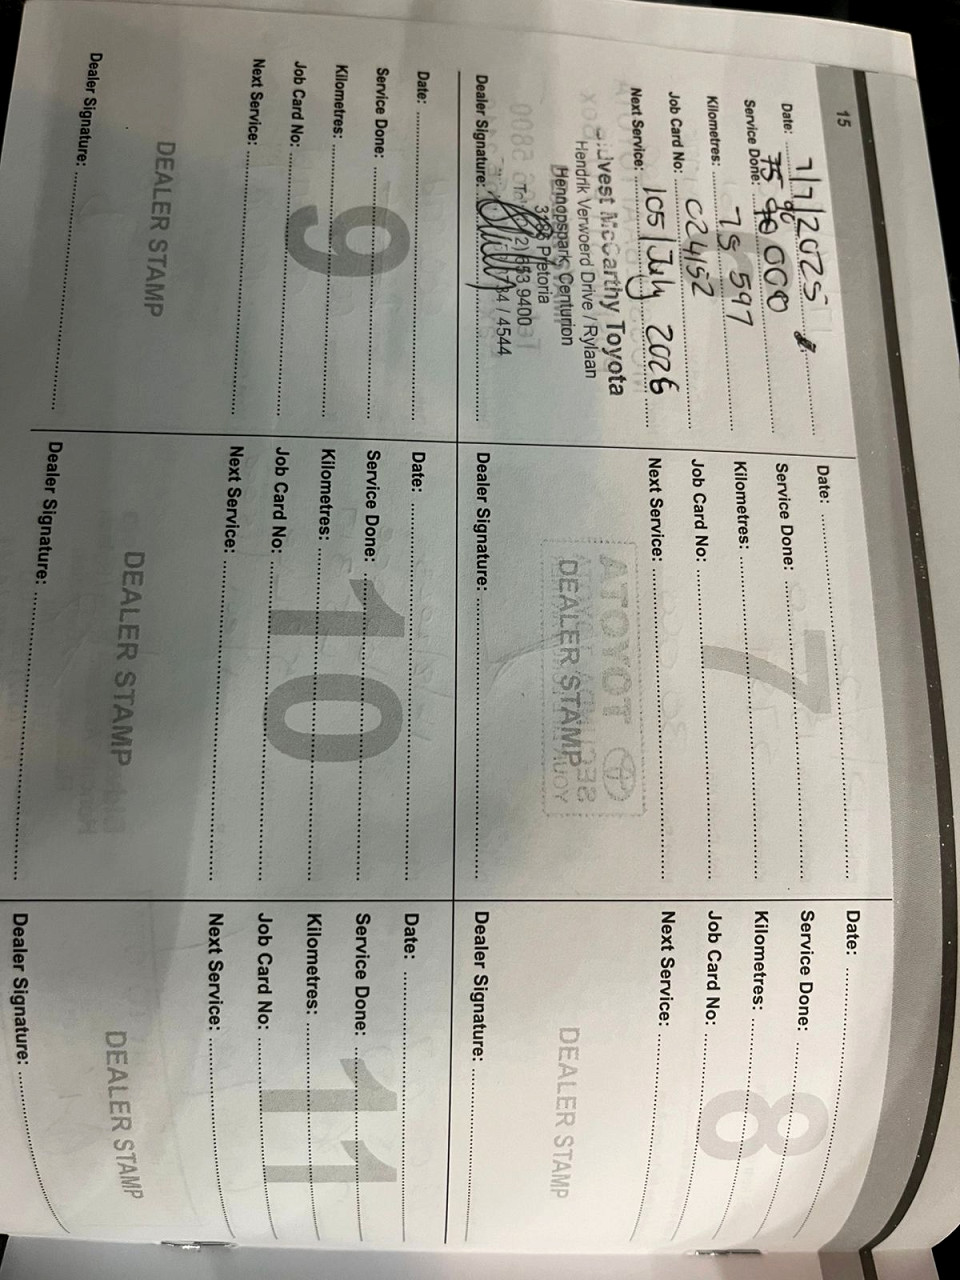 15
Date: 7/7/2025
Service Done: 75 90 000
Kilometres: 75 597
Job Card No: C24152
Next Service: 105/July 2026
McCarthy Toyota
Hendrik Verwoerd Drive / Rylaan
Hennopspark, Centurion
Pretoria
653 9400
/ 4544
Dealer Signature:
7
Date:
Service Done:
Kilometres:
Job Card No:
Next Service:
DEALER STAMP
Dealer Signature:
8
Date:
Service Done:
Kilometres:
Job Card No:
Next Service:
DEALER STAMP
Dealer Signature:
9
Date:
Service Done:
Kilometres:
Job Card No:
Next Service:
DEALER STAMP
Dealer Signature:
10
Date:
Service Done:
Kilometres:
Job Card No:
Next Service:
DEALER STAMP
Dealer Signature:
11
Date:
Service Done:
Kilometres:
Job Card No:
Next Service:
DEALER STAMP
Dealer Signature: